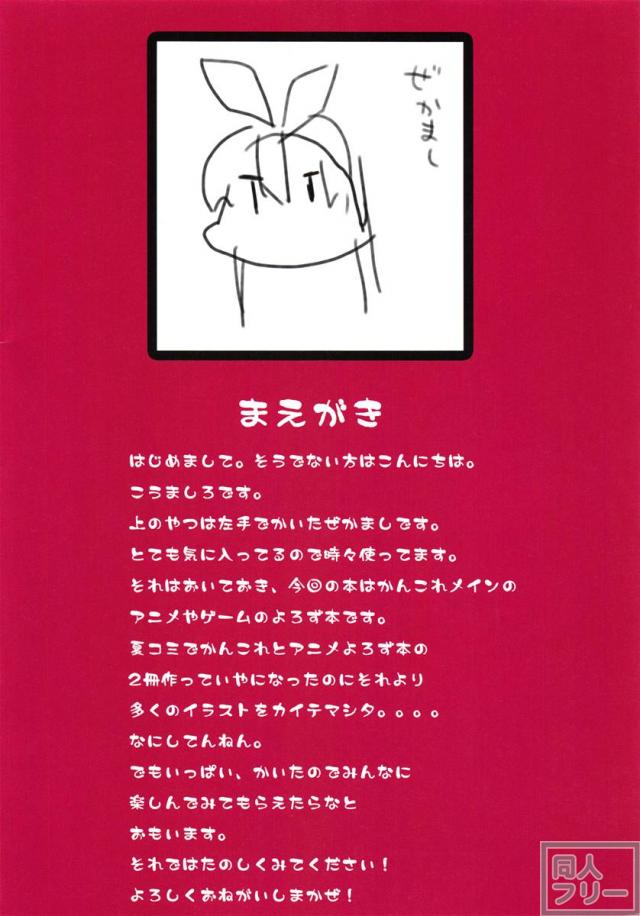 ぜかまし
まえがき
はじめまして。そうでない方はこんにちは。
こうましろです。
上のやつは左手でかいたぜかましです。
とても気に入ってるので時々使ってます。
それはおいておき、今回の本はかんこれメインの
アニメやゲームのよろず本です。
夏コミでかんこれとアニメよろず本の
2冊作っていやになったのにそれより
多くのイラストをカイテマシタ。。。。
なにしてんねん。
でもいっぱい、かいたのでみんなに
楽しんでみてもらえたらなと
おもいます。
それではたのしくみてください！
よろしくおねがいしまかぜ！
同人
フリー